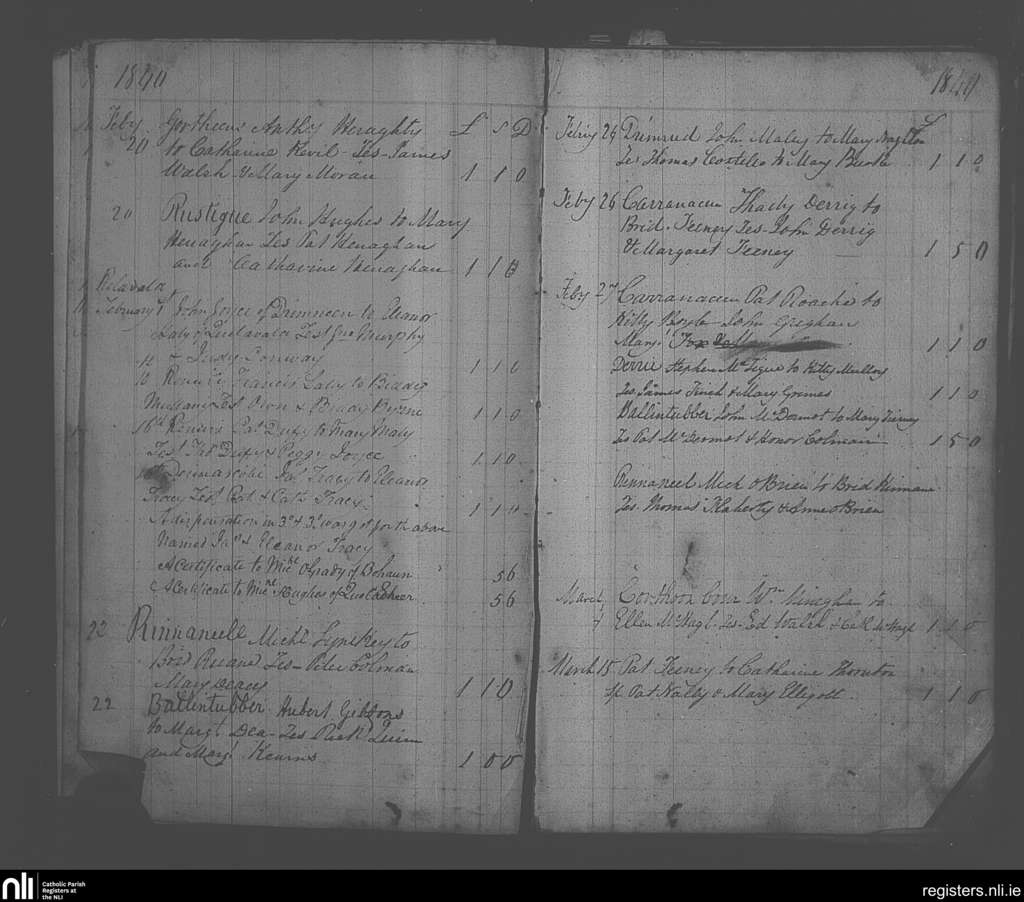 1840
Feby Gortheens Anthy Heraghty £ S D
20 to Catharine Kevil - Tes - James
Walsh & Mary Moran 1 1 0
20 Rustigue John Hughes to Mary
Henaghan Tes Pat Henaghan
and Catharine Henaghan 1 1 0
February John Joyce of Drimneen to Eleanor
Laly of
& Judy Conway 1 1 0
10 Francis Laly to Biddy
Tes Own & Biddy Byrne 1 1 0
16th Pat Duffy to Mary Maly
Test Pat Duffy & Peggy Joyce 1 1 0
Jas Tracy to Eleanor
Tracy Test Pat & Cath Tracy 1 1 0
A dispensation in 3o & 3o forth above
Named Jas & Eleanor Tracy
A Certificate to Micl OGrady of Bohaun 5 6
A Certificate to Micl Hughes of 5 6
22 Rinnaneel Michl to
Brid Ruane Tes - Peter Colman
Mary 1 1 0
22 Ballintubber Hubert Gibbons
to Margt Dea - Tes Richd Quin
and Margt Kearns 1 0 0
1840
£
Febry 24 Drimred John Maley to Mary Naghton
Tes Thomas Costello & Mary Burke 1 1 0
Feby 26 Carranacun Thady Derrig to
Brid. Feeney Tes - John Derrig
& Margaret Feeney 1 5 0
Feby 27 Carranacun Pat Roache to
Kitty Boyle John Greghan
Mary Fox 1 1 0
Derrie Stephen McTigue to Kitty Mulloy
Tes James Finch & Mary Groones 1 1 0
Ballintubber John McDermot to Mary Tierney
Tes Pat McDermot & Honor Colman 1 5 0
Rinnaneel Mick OBrien to Brid Kinnane
Tes Thomas Flaherty & Anne OBrien
March Wm to
Ellen McHugh - Tes - Ed Walsh & Cath McHugh 1 1 0
March 15 Pat Feeney to Catharine Thornton
Sp Pat Nally & Mary Elligott 1 1 0
nli
Catholic Parish
Registers at
the NLI
registers.nli.ie